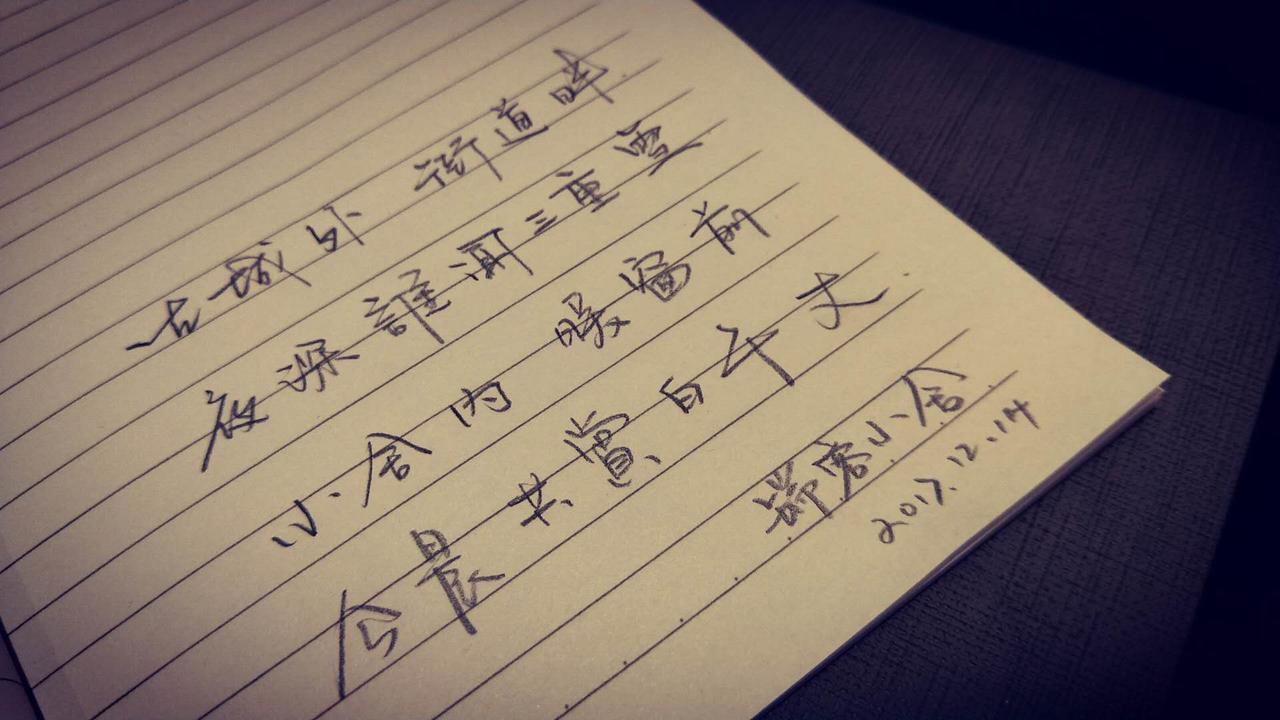 古城外 街道畔
夜深誰沏三重雪
小舍内 暖窗前
今晨共賞白千丈
歸客小舍
2017.12.14